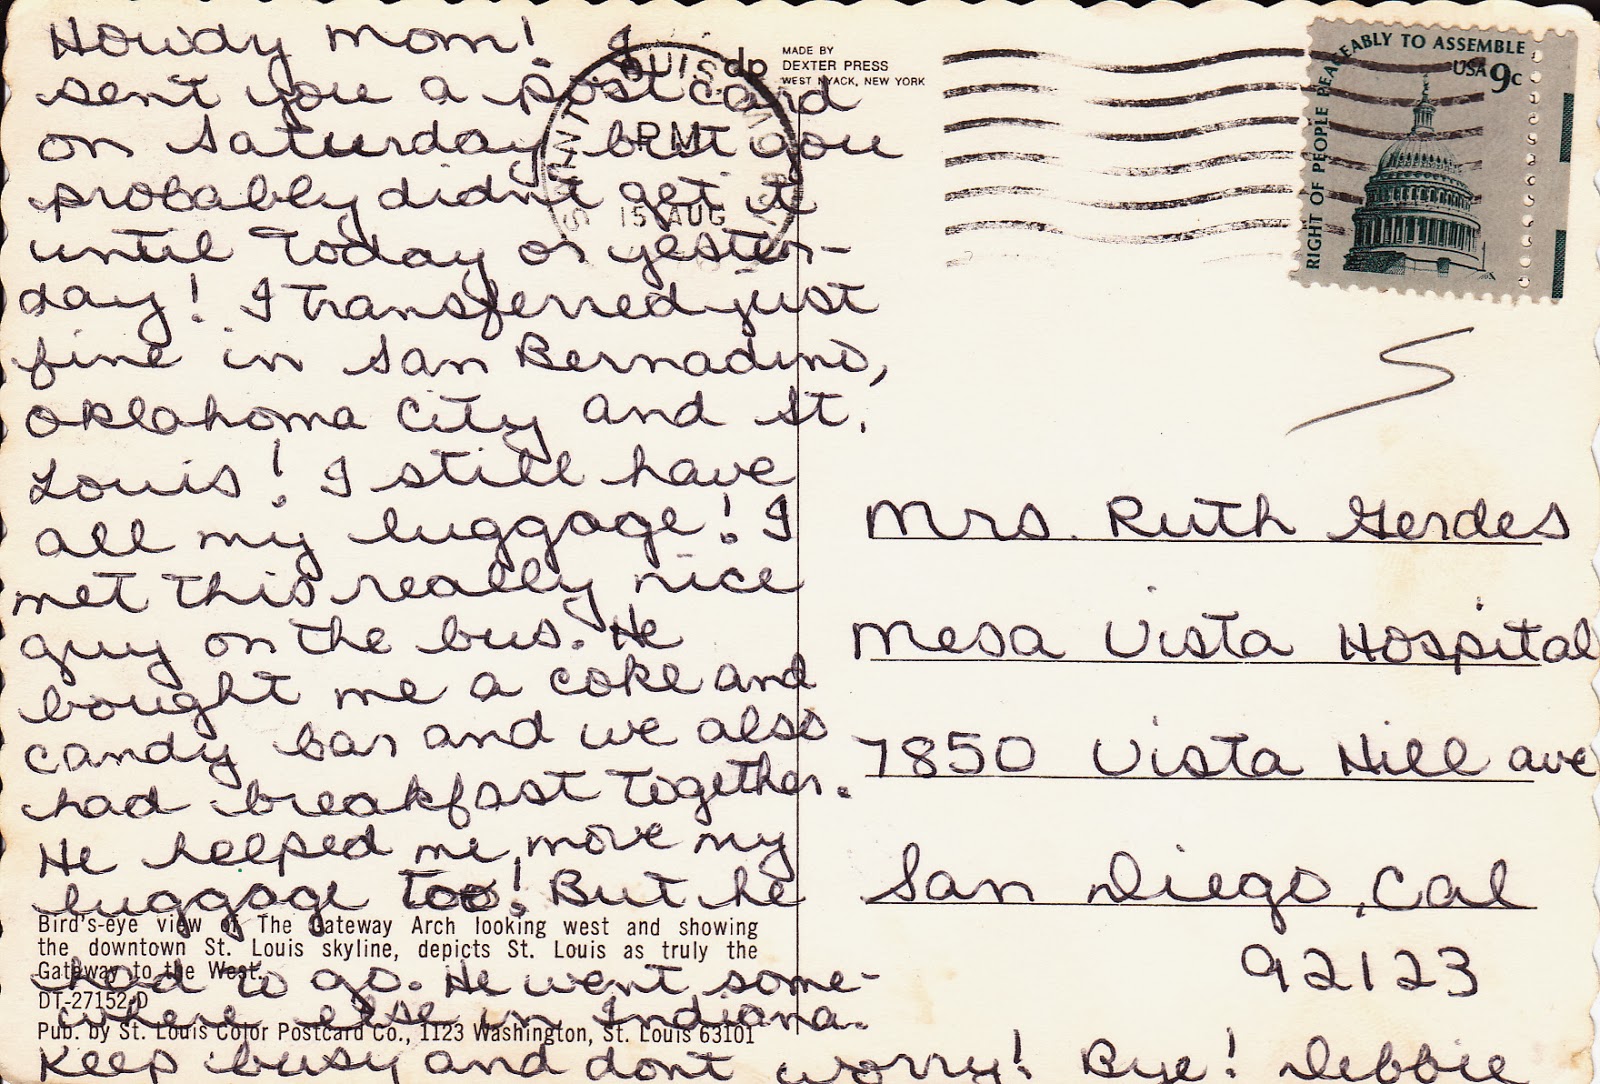 Howdy mom! I
sent you a postcard
on Saturday but you
probably didn't get it
until today or yester-
day! I transferred just
fine in San Bernadino,
Oklahoma City and St.
Louis! I still have
all my luggage! I
met this really nice
guy on the bus. He
bought me a coke and
candy bar and we also
had breakfast together.
He helped me move my
luggage too! But he
had to go. He went some-
where else in Indiana.
Keep busy and dont worry! Bye! Debbie
Bird's-eye view of The Gateway Arch looking west and showing
the downtown St. Louis skyline, depicts St. Louis as truly the
Gateway to the West.
DT-27152-D
Pub. by St. Louis Color Postcard Co., 1123 Washington, St. Louis 63101
dp
MADE BY
DEXTER PRESS
WEST NYACK, NEW YORK
SAINT LOUIS
PM
15 AUG
RIGHT OF PEOPLE PEACEABLY TO ASSEMBLE
USA 9c
Mrs. Ruth Gerdes
Mesa Vista Hospital
7850 Vista Hill ave
San Diego, Cal
92123